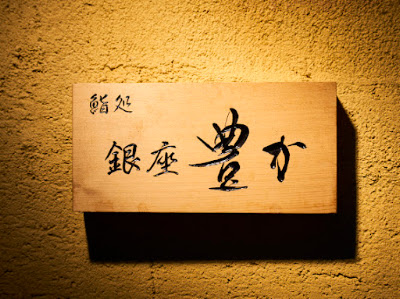 鮨処
銀座 豊か